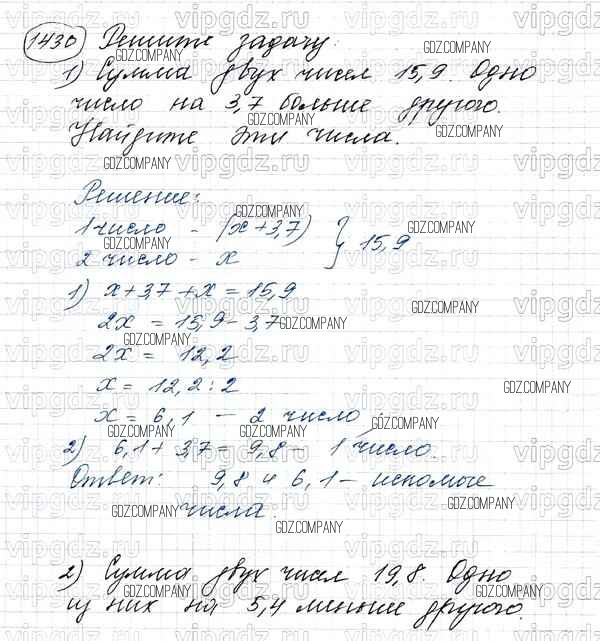 1430 Решите задачу:
1) Сумма двух чисел 15,9. Одно
число на 3,7 больше другого.
Найдите эти числа.
Решение:
1 число - (x+3,7) } 15,9
2 число - x
1) x+3,7+x=15,9
2x = 15,9-3,7
2x = 12,2
x = 12,2:2
x = 6,1 - 2 число
2) 6,1+3,7=9,8 - 1 число.
Ответ: 9,8 и 6,1 - искомые
числа.
2) Сумма двух чисел 19,8. Одно
из них на 5,4 меньше другого.